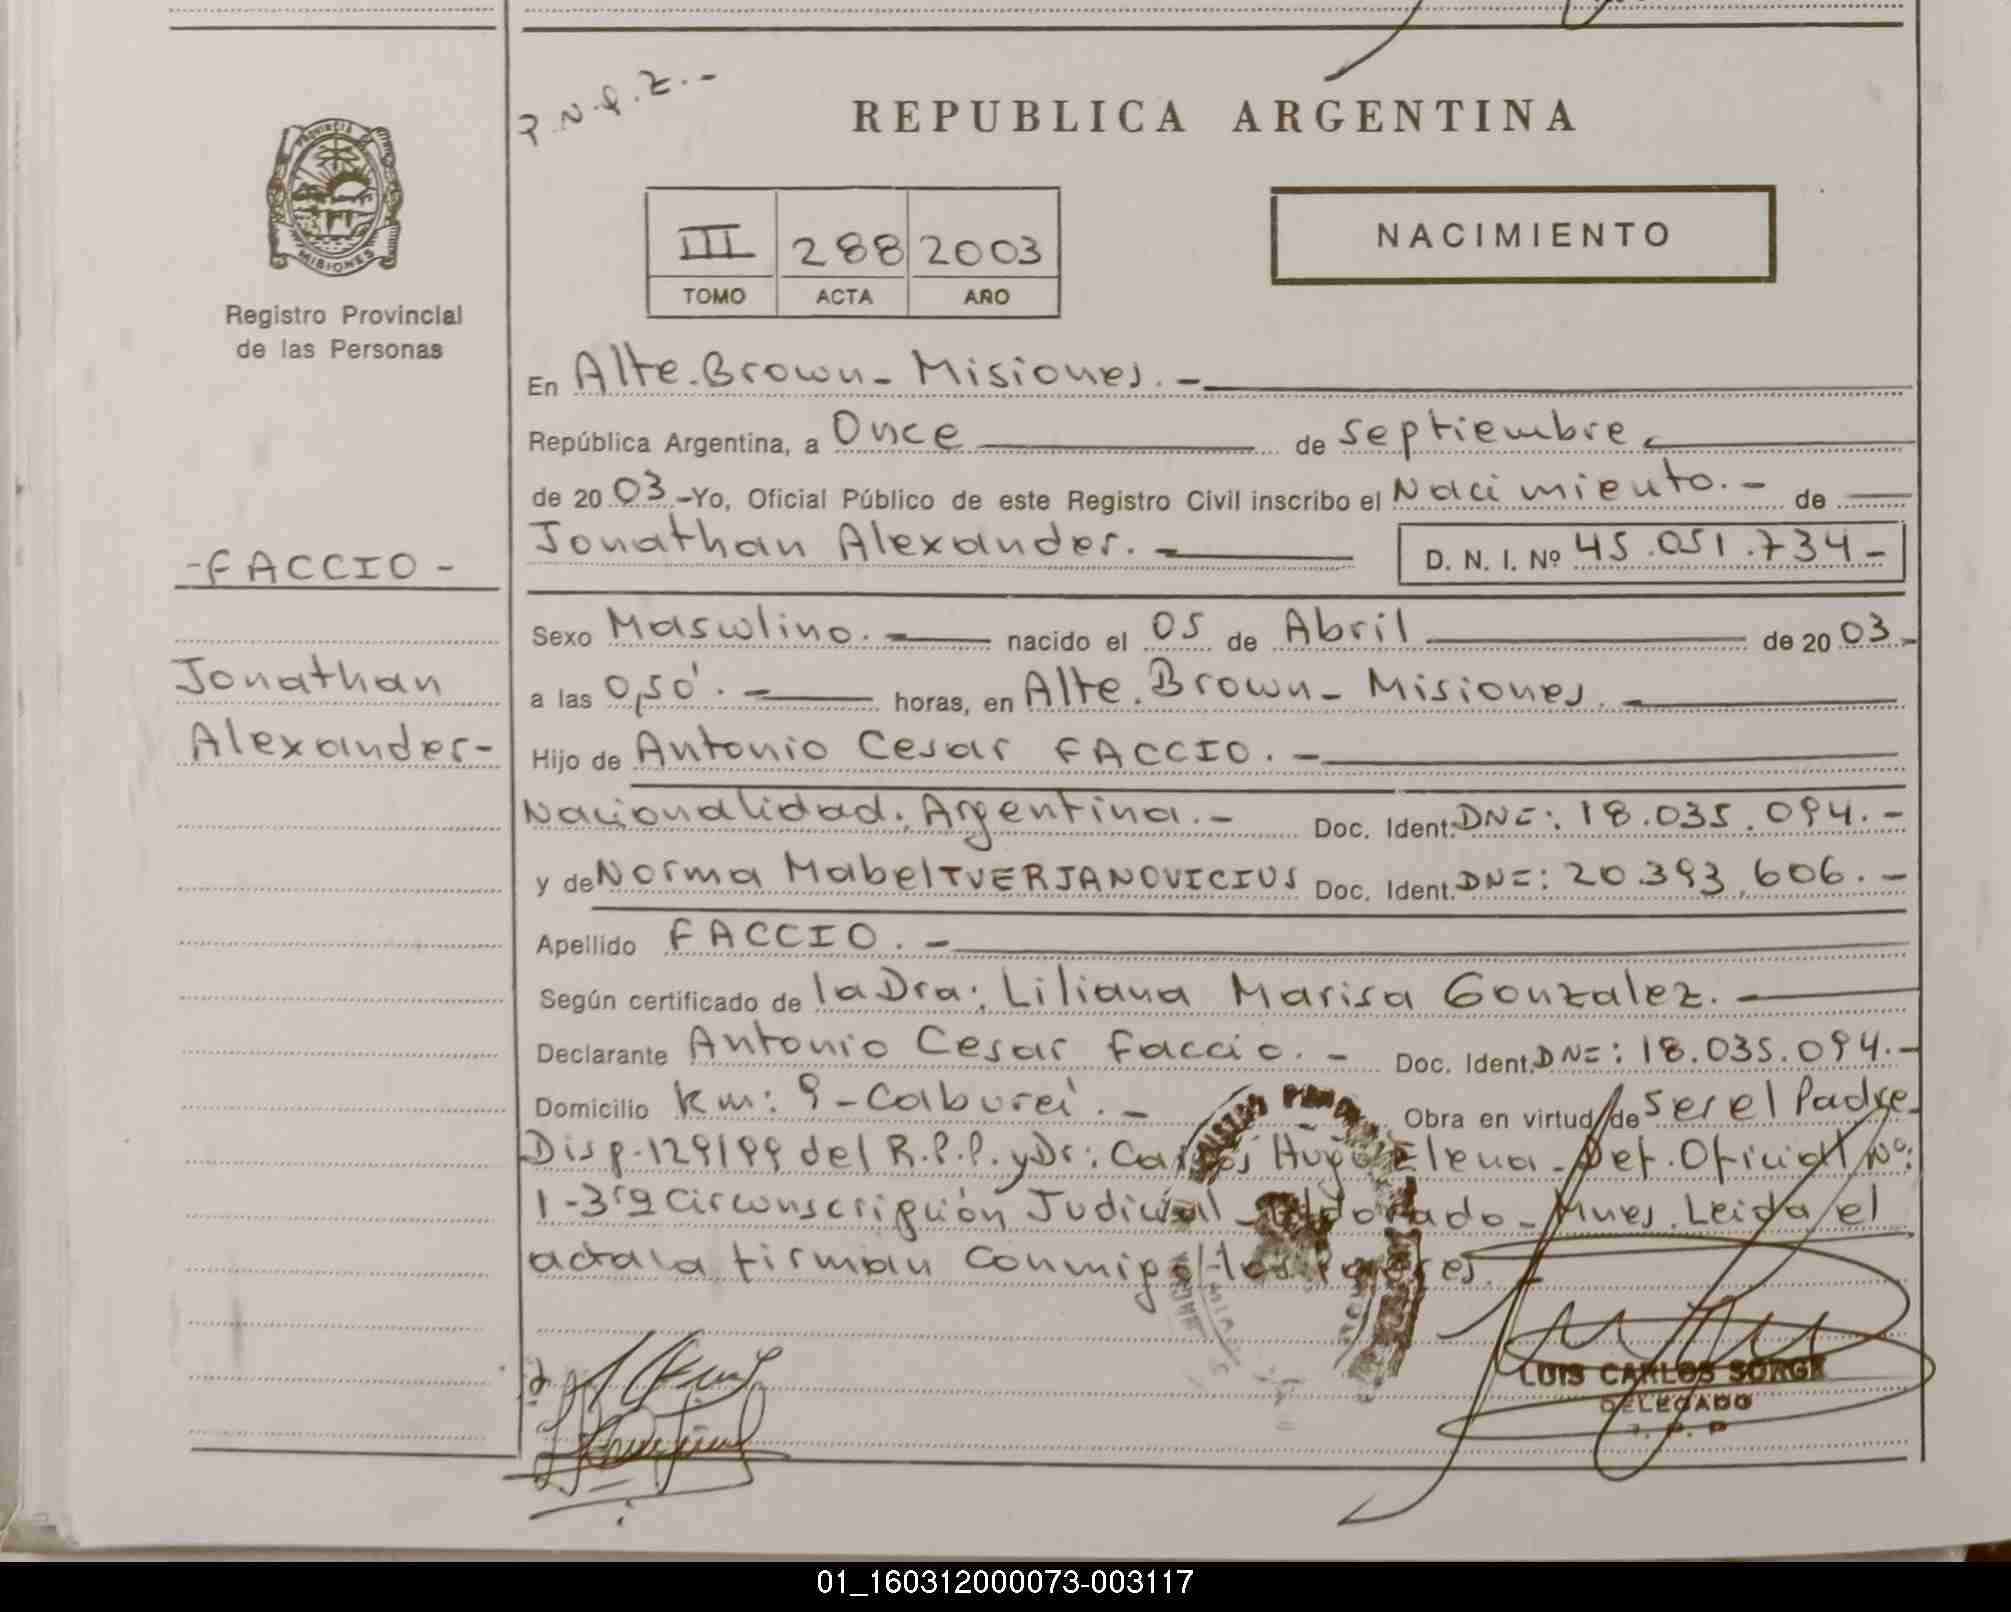 P.N.Q.Z.-
REPUBLICA ARGENTINA
PROVINCIA DE
MISIONES
Registro Provincial
de las Personas
III 288 2003
TOMO ACTA AÑO
NACIMIENTO
En Alte. Brown - Misiones. -
República Argentina, a Once de septiembre
de 20 03.- Yo, Oficial Público de este Registro Civil inscribo el Nacimiento. - de
Jonathan Alexander. - D. N. I. Nº 45.051.734-
- FACCIO -
Sexo Masculino. - nacido el 05 de Abril de 20 03.-
Jonathan
Alexander-
a las 0,50'. - horas, en Alte. Brown - Misiones. -
Hijo de Antonio Cesar FACCIO. -
Nacionalidad. Argentina. - Doc. Ident. DNI: 18.035.094. -
y de Norma Mabel TVERJANOVICIUS Doc. Ident. DNI: 20.393.606. -
Apellido FACCIO. -
Según certificado de la Dra: Liliana Marisa Gonzalez. -
Declarante Antonio Cesar Faccio. - Doc. Ident. DNI: 18.035.094. -
Domicilio Km: 9 - Caburei. - Obra en virtud de ser el Padre
Disp. 129/99 del R.P.P. y Dr: Carlos Hugo Elena - Def. Oficial Nº:
1 - 3ra Circunscripción Judicial - Eldorado - Mnes. Leida el
acta la firman conmigo los Padres. -
LUIS CARLOS SORGE
DELEGADO
R. P. P
01_160312000073-003117